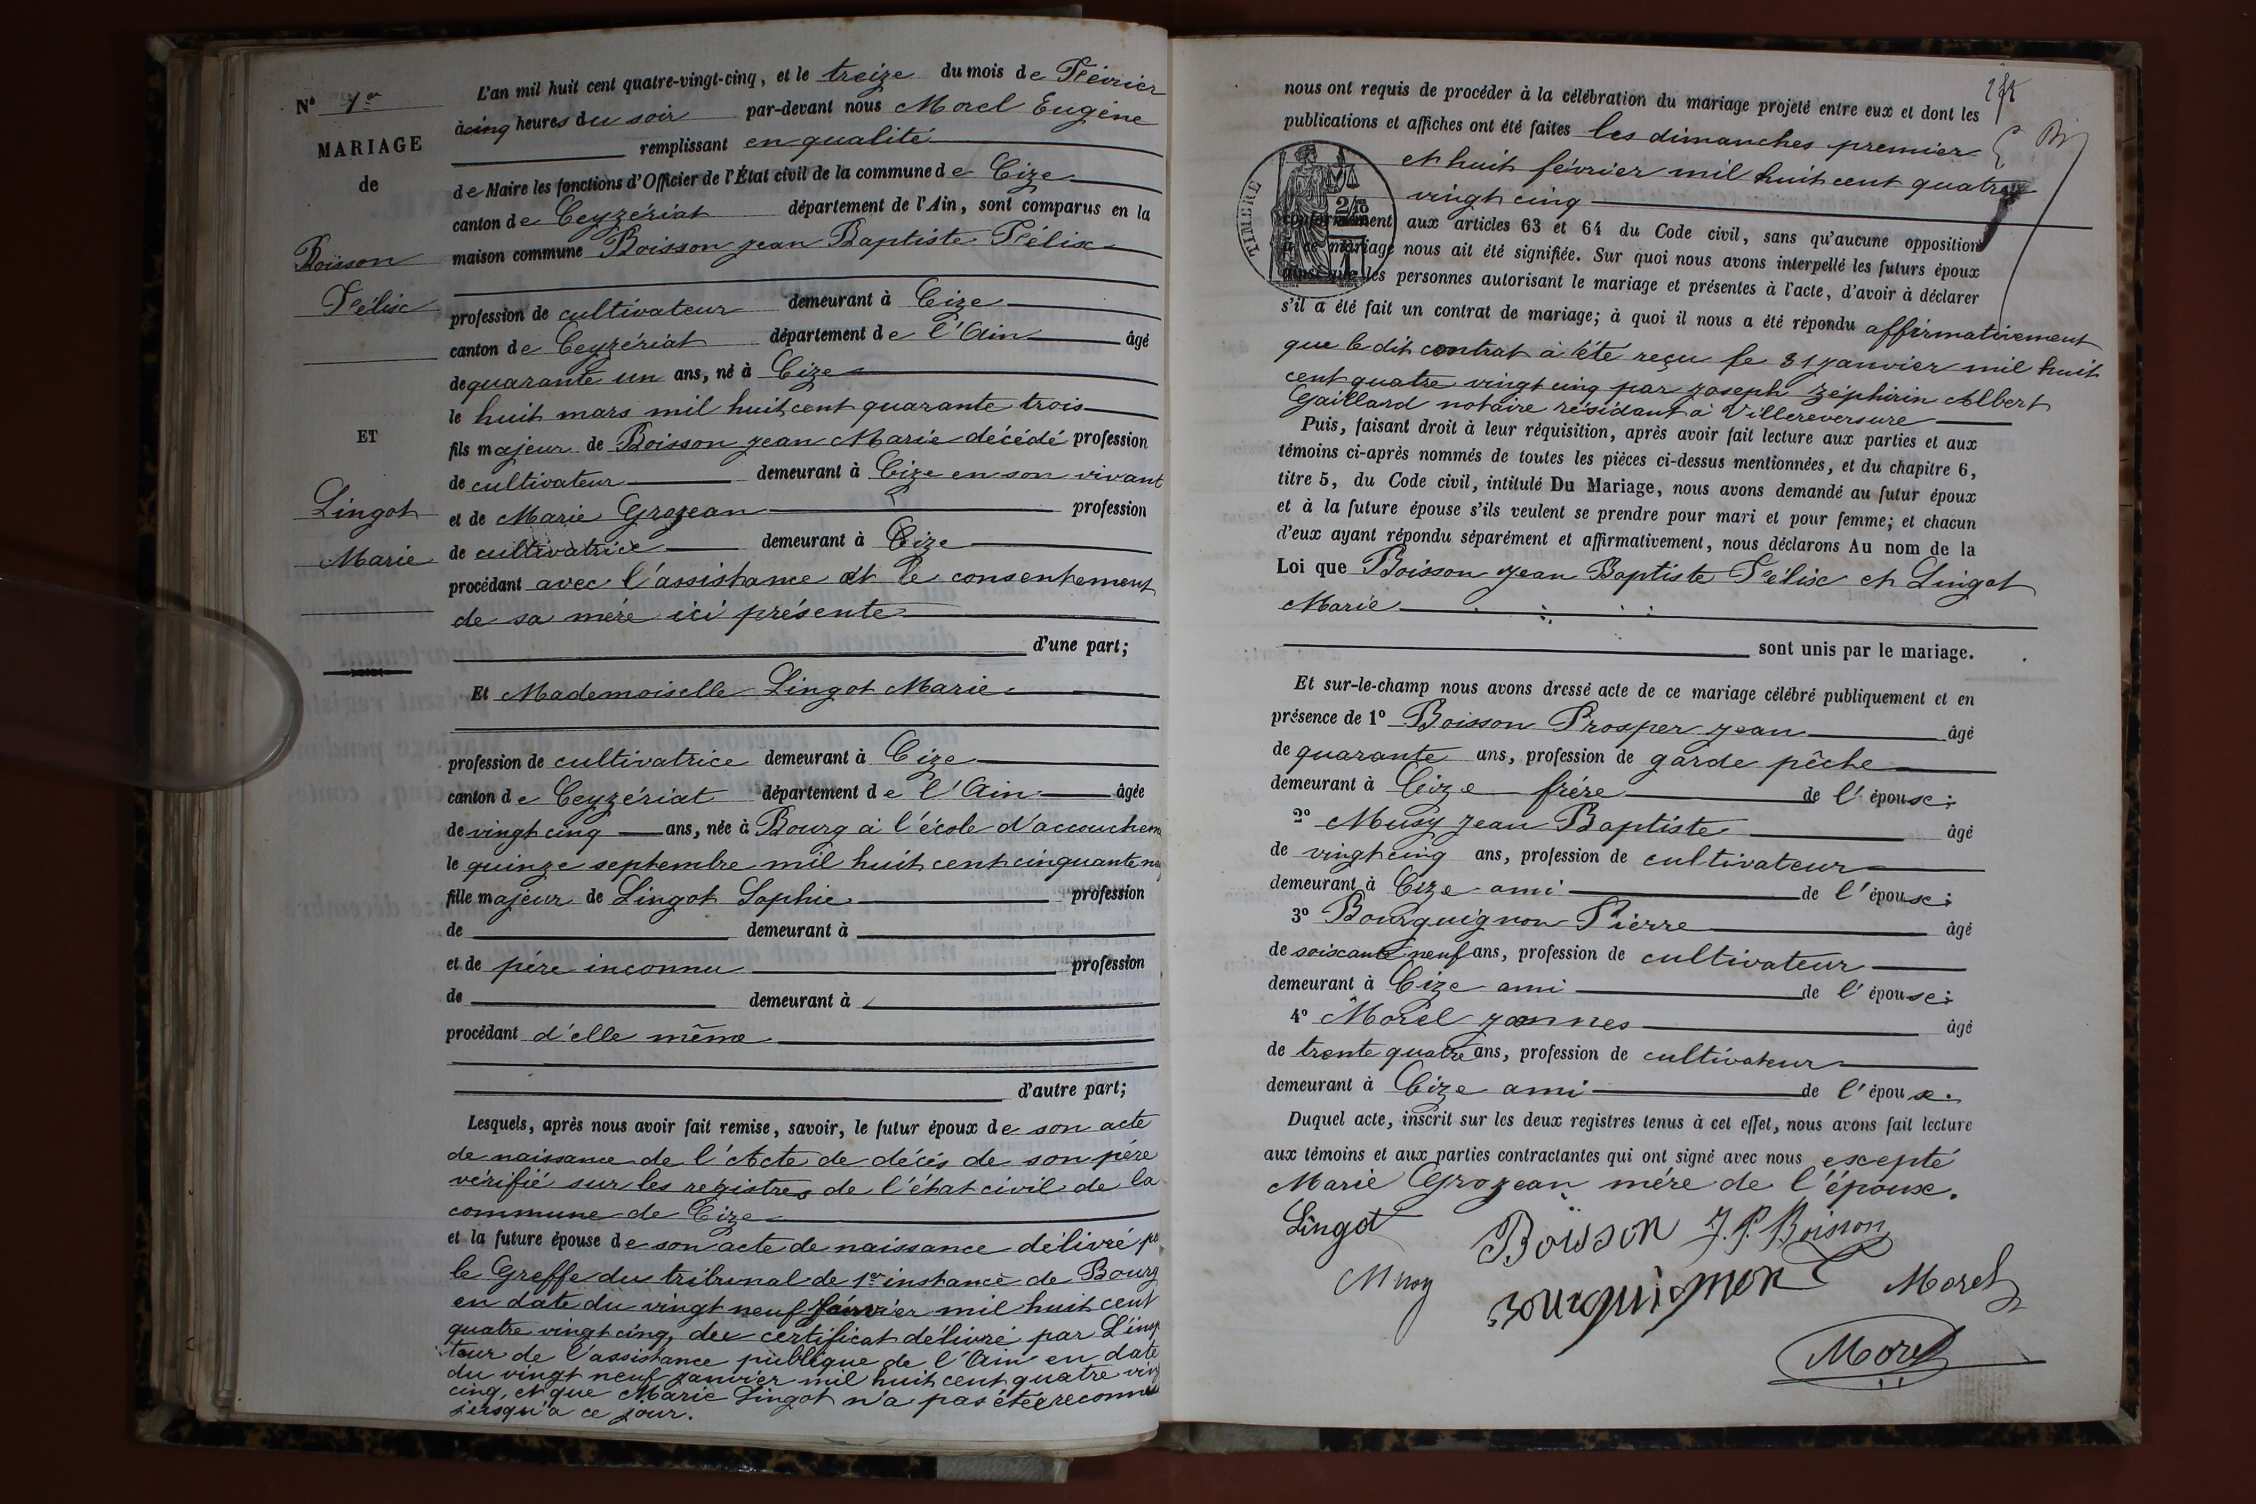 N° 1er
MARIAGE
de
Boisson
Félix
ET
Lingot
Marie
L'an mil huit cent quatre-vingt-cinq, et le treize du mois de Février
à cinq heures du soir par-devant nous Morel Eugène
remplissant en qualité
de Maire les fonctions d'Officier de l'État civil de la commune de Cize
canton de Ceyzériat département de l'Ain, sont comparus en la
maison commune Boisson Jean Baptiste Félix
profession de cultivateur demeurant à Cize
canton de Ceyzériat département de l'Ain âgé
de quarante un ans, né à Cize
le huit mars mil huit cent quarante trois
fils majeur de Boisson Jean Marie décédé profession
de cultivateur demeurant à Cize en son vivant
et de Marie Grozean profession
de cultivatrice demeurant à Cize
procédant avec l'assistance et le consentement
de sa mère ici présente
d'une part;
Et Mademoiselle Lingot Marie
profession de cultivatrice demeurant à Cize
canton de Ceyzériat département de l'Ain âgée
de vingt cinq ans, née à Bourg à l'école d'accouchem
le quinze septembre mil huit cent cinquante ne
fille majeur de Lingot Sophie profession
de demeurant à
et de père inconnu profession
de demeurant à
procédant d'elle même
d'autre part;
Lesquels, après nous avoir fait remise, savoir, le futur époux de son acte
de naissance de l'Acte de décès de son père
vérifié sur les registres de l'état civil de la
commune de Cize
et la future épouse de son acte de naissance délivré pa
le Greffe du tribunal de 1er instance de Bourg
en date du vingt neuf janvier mil huit cent
quatre vingt cinq, du certificat délivré par L'insp
teur de l'assistance publique de l'Ain en date
du vingt neuf janvier mil huit cent quatre ving
cinq, et que Marie Lingot n'a pas étée reconnue
jusqu'a ce jour.
nous ont requis de procéder à la célébration du mariage projeté entre eux et dont les
publications et affiches ont été faites les dimanches premier
et huit février mil huit cent quatre
vingt cinq
TIMBRE
conformément aux articles 63 et 64 du Code civil, sans qu'aucune opposition
à ce mariage nous ait été signifiée. Sur quoi nous avons interpellé les futurs époux
ainsi que les personnes autorisant le mariage et présentes à l'acte, d'avoir à déclarer
s'il a été fait un contrat de mariage; à quoi il nous a été répondu affirmativement
que le dit contrat à été reçu le 31 janvier mil huit
cent quatre vingt cinq par Joseph Zéphirin Albert
Gaillard notaire résidant à Villereversure
Puis, faisant droit à leur réquisition, après avoir fait lecture aux parties et aux
témoins ci-après nommés de toutes les pièces ci-dessus mentionnées, et du chapitre 6,
titre 5, du Code civil, intitulé Du Mariage, nous avons demandé au futur époux
et à la future épouse s'ils veulent se prendre pour mari et pour femme; et chacun
d'eux ayant répondu séparément et affirmativement, nous déclarons Au nom de la
Loi que Boisson Jean Baptiste Félix et Lingot
Marie
sont unis par le mariage.
Et sur-le-champ nous avons dressé acte de ce mariage célébré publiquement et en
présence de 1° Boisson Prosper Jean âgé
de quarante ans, profession de garde pêche
demeurant à Cize frère de l'épouse;
2° Musy Jean Baptiste âgé
de vingt cinq ans, profession de cultivateur
demeurant à Cize ami de l'épouse;
3° Bourguignon Pierre âgé
de soixante neuf ans, profession de cultivateur
demeurant à Cize ami de l'épouse;
4° Morel Joannes âgé
de trente quatre ans, profession de cultivateur
demeurant à Cize ami de l'épouse.
Duquel acte, inscrit sur les deux registres tenus à cet effet, nous avons fait lecture
aux témoins et aux parties contractantes qui ont signé avec nous excepté
Marie Grozean mère de l'époux.
Lingot Boisson J. P. Boisson
Musy Bourguignon Morel
Morel